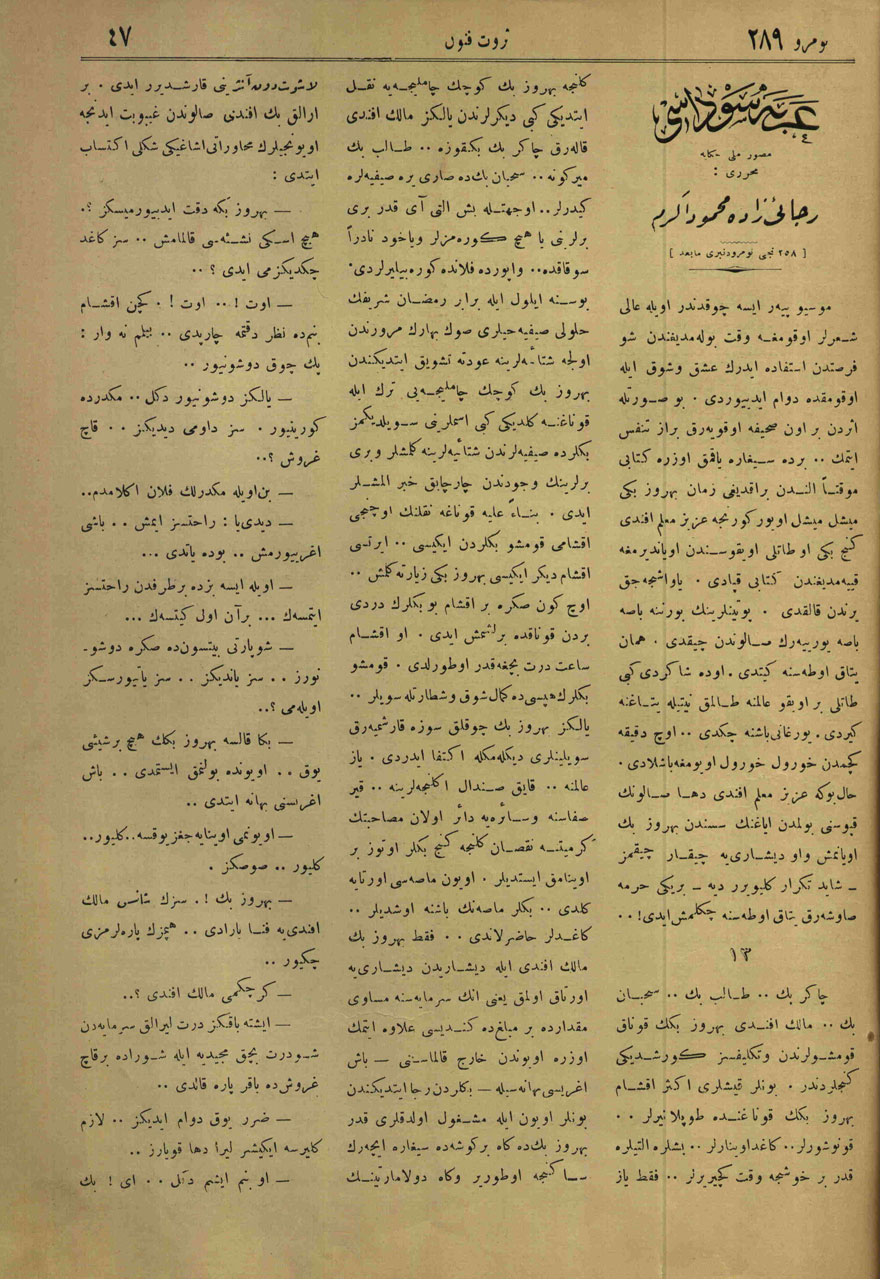 نومرو ۲۸۹
ثروت فنون
٤٧
عربه سوداسی
مصور ملی حکایه
محرری :
رجائی زاده محمود اکرم
[ ۲۵۸ نجی نومرودنبری مابعد ]
موسیو پیه‌ر ایسه چوقدندر اویله عالی
شعرلر اوقومغه وقت بوله‌مدیغندن شو
فرصتدن استفاده ایدرك عشق وشوق ایله
اوقومقده دوام ایدییوردی . بو صورتله
آردن بر اون صحیفه اوقویه‌رق براز تنفس
ایتمك .. برده سیغاره یاقمق اوزره کتابی
موقتاً الندن براقدیغی زمان بهروز بکی
میشل میشل اویور کورنجه عزیز معلم افندی
کنج بکی او طاتلی اویقوسندن اویاندیرمغه
قییه‌مدیغندن کتابی قپادی . یاواشجه‌جق
یرندن قالقدی . پوتینلرینك بورننه باصه
باصه یورییه‌رك صالوندن چیقدی . همان
یتاق اوطه‌سنه کیتدی . اوده شاکردی کبی
طاتلی بر اویقو عالمنه طالمق نیتیله یتاغنه
کیردی . یورغانی باشنه چکدی .. اوچ دقیقه
کچمدن خورول خورول اویومغه باشلادی .
حال بوکه عزیز معلم افندی دها صالونك
قپوسنی بولمدن ایاغنك سسندن بهروز بك
اویانمش واو دیشاری‌یه چیقار چیقمز
ـ شاید تکرار کلیویرر دیه ـ بریکی حرمه
صاوشه‌رق یتاق اوطه‌سنه چکلمش ایدی! . .
۱۳
چاکر بك .. طالب بك .. سحبان
بك .. مالك افندی بهروز بکك قوناق
قومشولرندن وتکلیفسز کورشدیکی
کنجلردندر . بونلر قیشلری اکثر اقشام
بهروز بکك قوناغنده طوپلانیرلر . .
قونوشورلر.. کاغد اوینارلر .. بشلره التیلره
قدر بر خوشجه وقت کچیریرلر .. فقط یاز
کلنجه بهروز بك کوچك چاملیجه‌یه نقل
ایتدیکی کبی دیکرلرندن یالکز مالك افندی
قاله‌رق چاکر بك بکقوزه .. طالب بك
میرکونه .. سحبان بك‌ده صاری یره صیفیه‌لره
کیدرلر.. اوجهتله بش التی آی قدر بری
برلرنی یا هیچ کوره‌مزلر ویاخود نادراً
سوقاقده.. واپورده فلانده کوره‌بیلیرلردی.
بوسنه ایلول ایله برابر رمضان شریفك
حلولی صیفیه‌جیلری صوك بهارك مرورندن
اولجه شتائیه‌لرینه عودته تشویق ایتدیکندن
بهروز بك کوچك چاملیجه‌یی ترك ایله
قوناغنه کلدیکی کبی اسملرینی سویلدیکمز
بکلرده صیفیه‌لرندن شتائیه‌لرینه کلمشلر وبری
برلرینك وجودندن چارچابق خبر المشلر
ایدی . بناءً علیه قوناغه نقلنك اوچنجی
اقشامی قومشو بکلردن ایکیسی .. ایرتسی
اقشام دیکر ایکیسی بهروز بکی زیارته کلمش ..
اوچ کون صکره بر اقشام بو بکلرك دردی
بردن قوناقده برلشمش ایدی . او اقشام
ساعت درت بچغه قدر اوطورلدی . قومشو
بکلرك هپسی‌ده کمال شوق وشطارتله سویلر ..
یالکز بهروز بك چوقلق سوزه قارشمیه‌رق
سویلینلری دیکله‌مکله اکتفا ایدردی . یاز
عالمنه .. قایق صندال اکلنجه‌لرینه .. قیر
صفاسنه وسائره‌یه دائر اولان مصاحبتك
کرمیتنه نقصان کلنجه کنج بکلر اوتوز بر
اوینامق ایستدیلر . اویون ماصه‌سی اورتایه
کلدی .. بکلر ماصه‌نك باشنه اوشدیلر ..
کاغدلر حاضرلاندی .. فقط بهروز بك
مالك افندی ایله دیشاریدن دیشاری‌یه
اورتاق اولمق یعنی انك سرمایه‌سنه مساوی
مقدارده بر مبلغ‌ده کندیسی علاوه ایتمك
اوزره اویوندن خارج قالماسنی — باش
اغریسی بهانه‌سیله — بکلردن رجا ایتدیکندن
بونلر اویون ایله مشغول اولدقلری قدر
بهروز بك‌ده کاه برکوشه‌ده سیغاره ایچه‌رك
ساکتجه اوطوریر وکاه دولامارتینك
آتشینی قارشدیرر ایدی . بر
ارالق بك افندی صالوندن غیبوبت ایدنجه
اویونجیلرك محاوراتی اشاغیکی شکلی اکتساب
ایتدی :
— بهروز بکه دقت ایدییورمیسکز ؟.
هیچ اسکی نشئه‌سی قالمامش .. سز کاغد
چکدیکزمی ایدی ؟ ..
— اوت ! .. اوت ! . کچن اقشام
بنم‌ده نظر دقتمه چارپدی .. بیلم نه وار :
پك چوق دوشونیور ..
— یالکز دوشونیور دکل .. مکدرده
کورینیور . سز داومی دیدیکز .. قاچ
غروش ؟..
— بن اویله مکدرلك فلان اکلامدم..
— دیدی‌یا : راحتسز ایمش .. باشی
اغرییورمش .. بوده یاتدی ...
— اویله ایسه بزده برطرفدن راحتسز
ایتمسه‌ك ... برآن اول کیتسه‌ك ...
— شوپارتی بیتسون‌ده صکره دوشو-
نورز .. سز یاندیکز .. سز یاتیورسکز
اویله‌می ؟..
— بکا قالسه بهروز بکك هیچ برشیئی
یوق .. اویونده بولنمق ایستمدی .. باش
اغریسنی بهانه ایتدی ..
— اویونمی اوینایه‌جغز یوقسه.. کلیور..
کلیور .. صوصکز .
— بهروز بك !. سزك شانس مالك
افندی‌یه فنا یارادی .. هپمزك پاره‌لرمزی
چکیور ..
— کرچکمی مالك افندی ؟..
— ایشته باقکز درت لیرالق سرمایه‌دن
شودرت بچق مجیدیه ایله شوراده برقاچ
غروش‌ده باقر پاره قالدی ..
— ضرر یوق دوام ایدیکز .. لازم
کلیرسه ایکیشر لیرا دها قویارز ..
— او بنم ایشم دکل .. ای ! بك